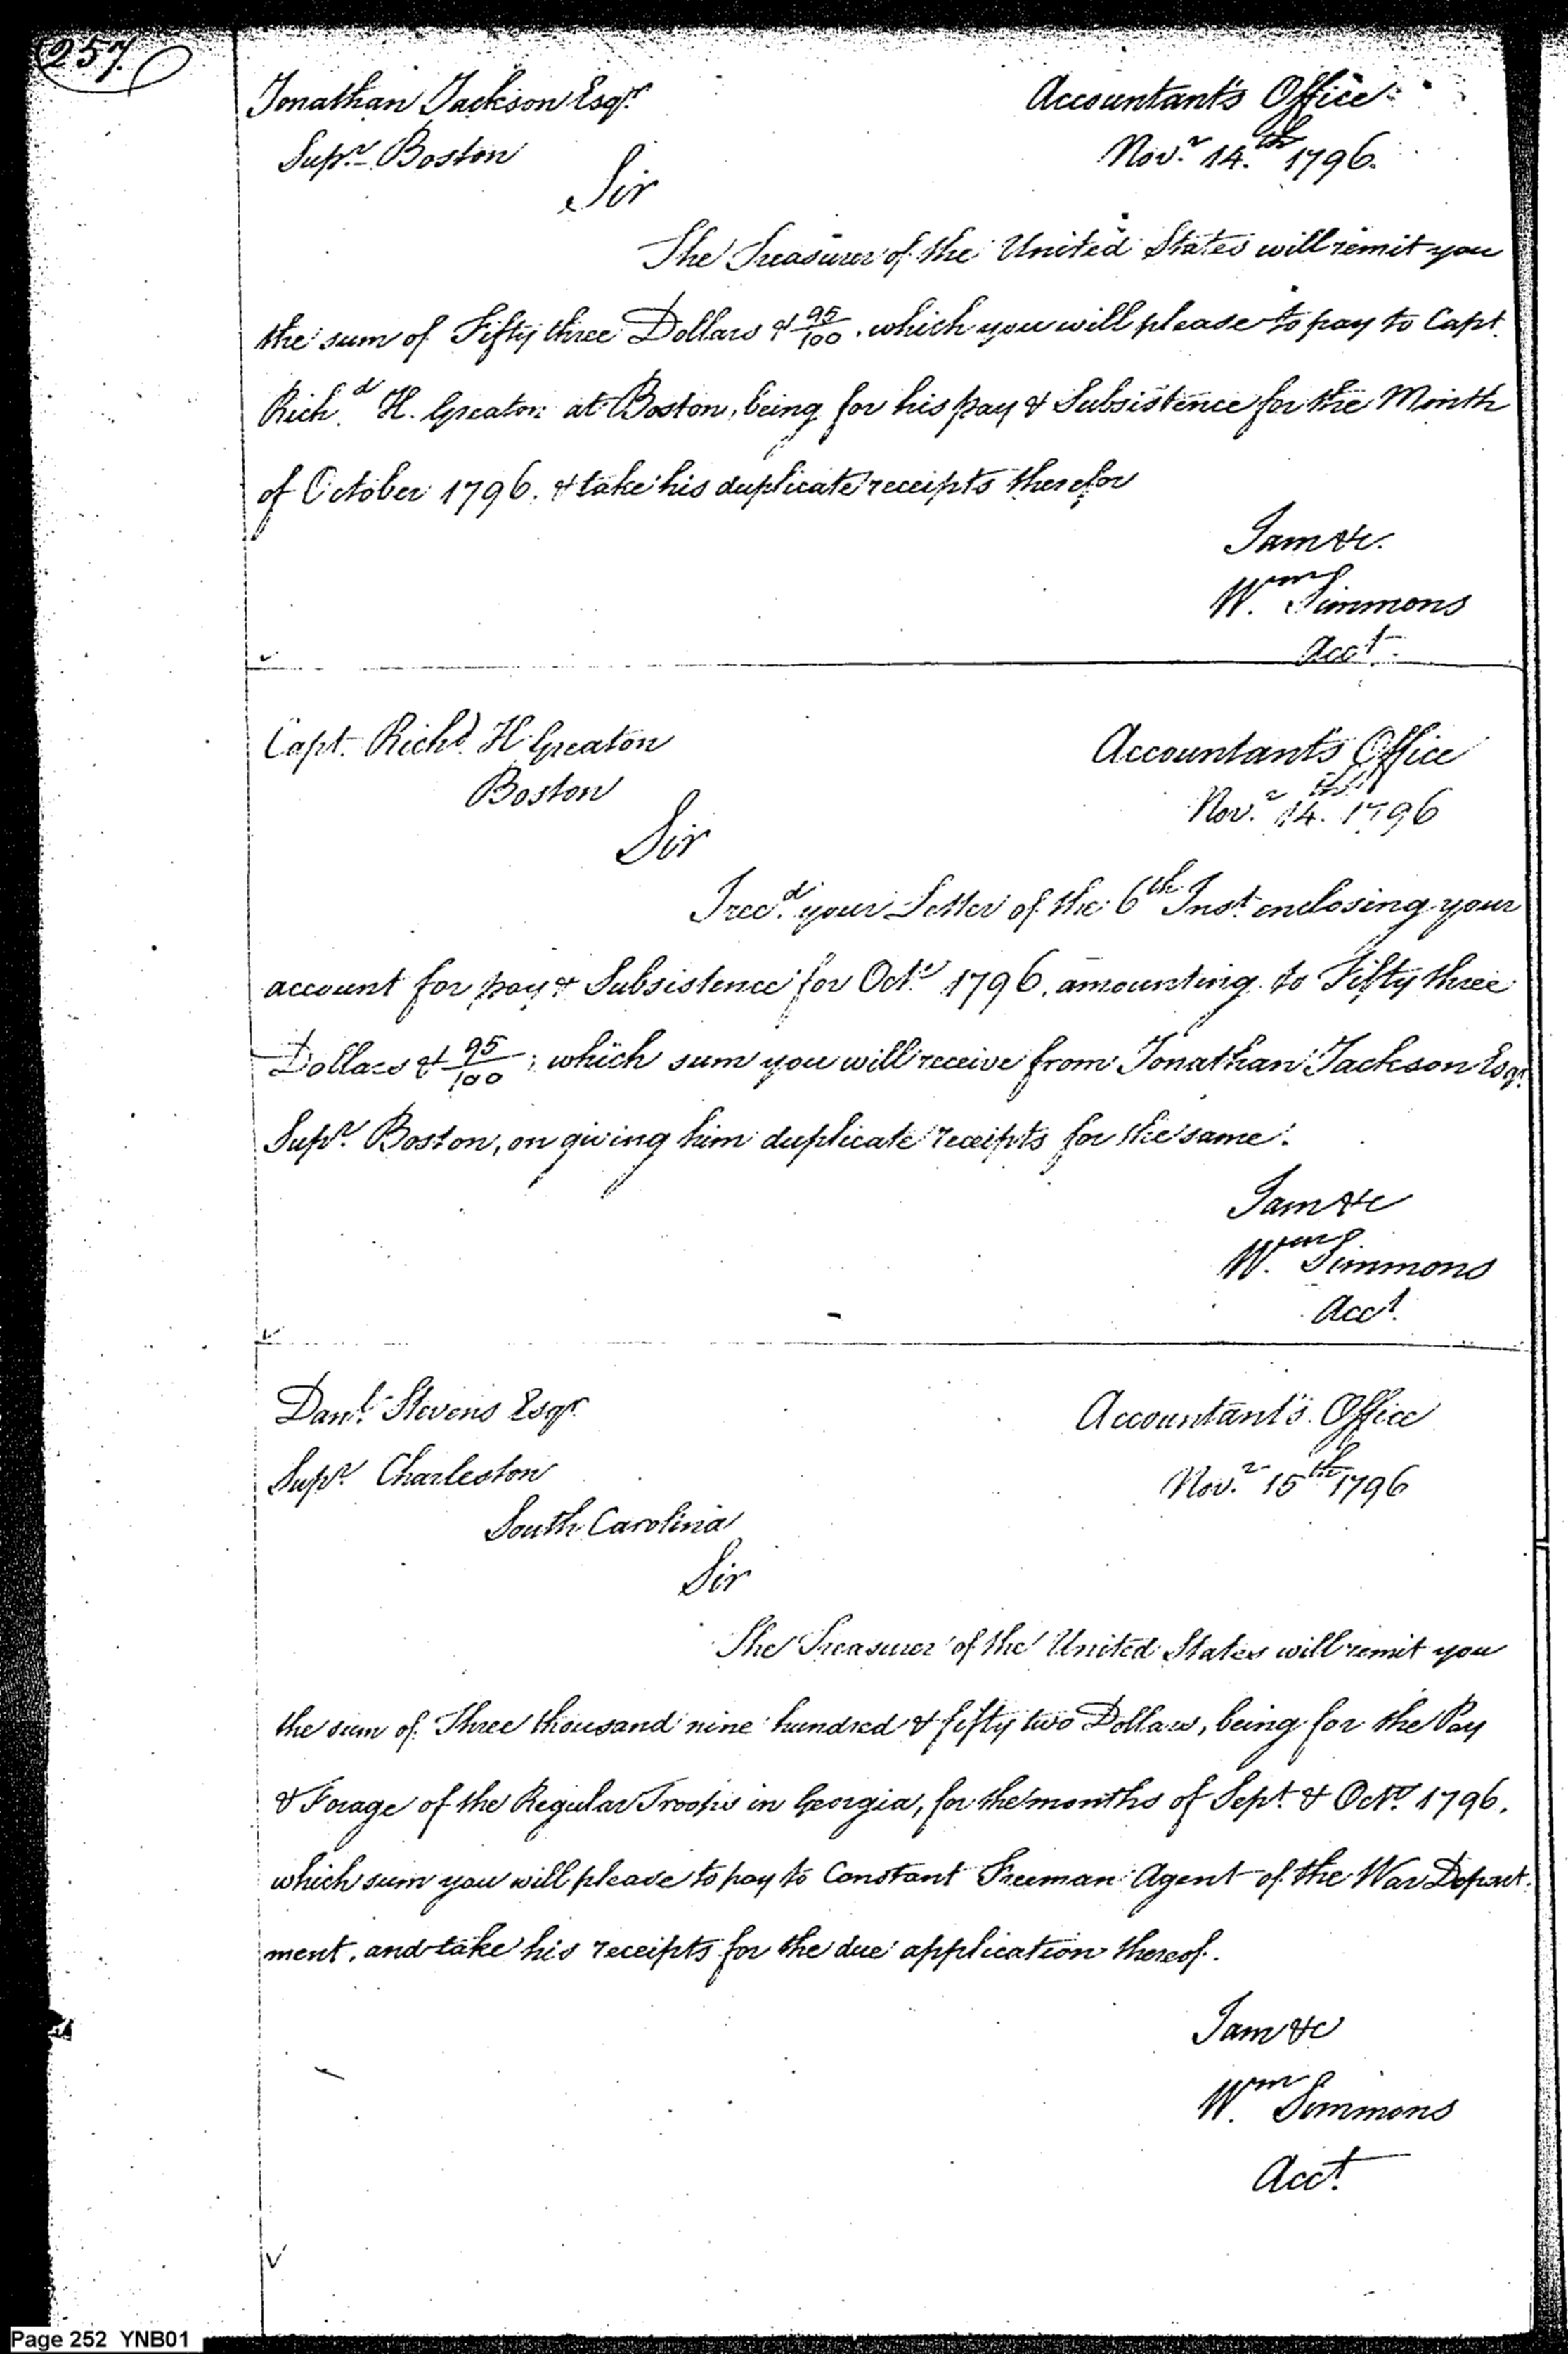 257.
Jonathan Jackson Esqr.
Supr. Boston
Accountant's Office
Novr. 14.th 1796.
Sir
The Treasurer of the United States will remit you
the sum of Fifty three Dollars & 95/100. which you will please to pay to Capt.
Richd. H. Greaton at Boston, being for his pay & Subsistence for the Month
of October 1796. & take his duplicate receipts therefor
I am &c.
Wm. Simmons
Acct.
Capt. Richd. H Greaton
Boston
Accountant's Office
Novr. 14.th 1796
Sir
I recd. your Letter of the 6th Inst. enclosing your
account for pay & Subsistence for Octr. 1796. amounting to Fifty three
Dollars & 95/100; which sum you will receive from Jonathan Jackson Esqr.
Supr. Boston, on giving him duplicate receipts for the same.
I am &c
Wm. Simmons
Acct.
Danl. Stevens Esqr.
Supr. Charleston
South Carolina
Accountant's Office
Novr. 15th 1796
Sir
The Treasurer of the United States will remit you
the sum of Three thousand nine hundred & fifty two Dollars, being for the Pay
& Forage of the Regular Troops in Georgia, for the months of Sept. & Octr. 1796.
which sum you will please to pay to Constant Freeman Agent of the War Depart-
ment. and take his receipts for the due application thereof.
I am &c
Wm. Simmons
Acct.
Page 252 YNB01